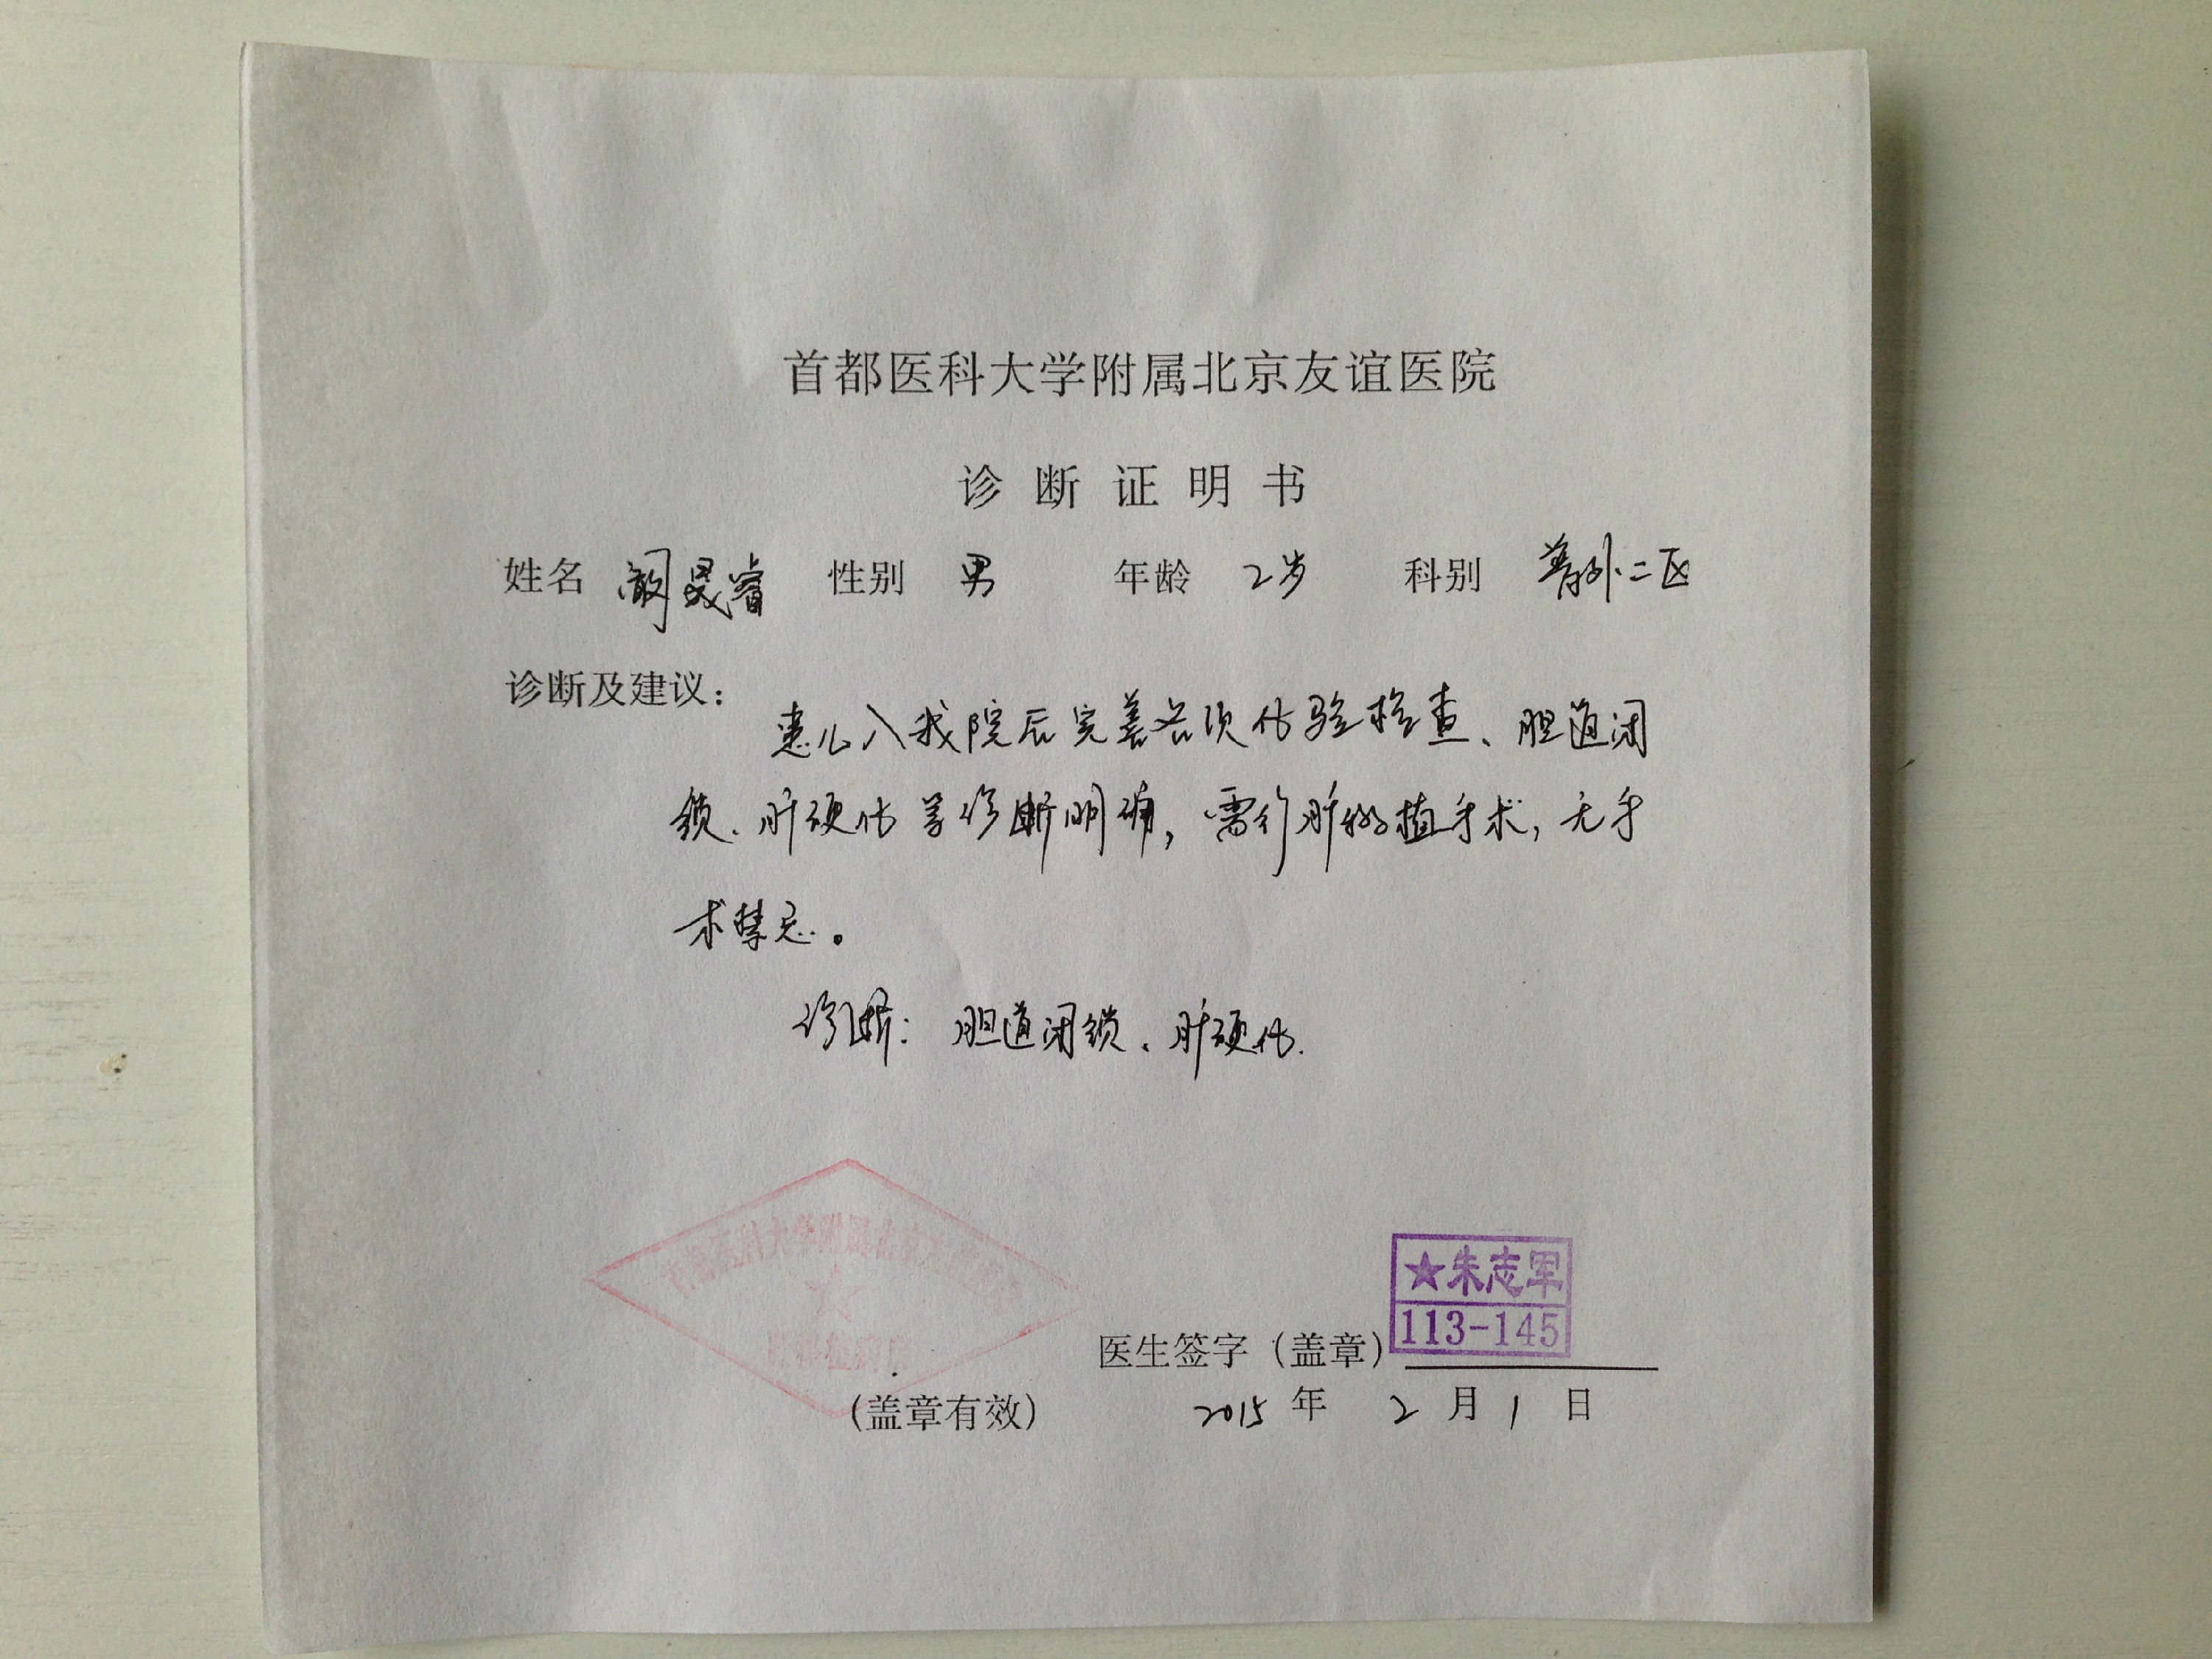 首都医科大学附属北京友谊医院
诊断证明书
姓名 阚晟睿 性别 男 年龄 2岁 科别 普外二区
诊断及建议：
患儿入我院后完善各项化验检查、胆道闭
锁、肝硬化等诊断明确，需行肝移植手术，无手
术禁忌。
诊断：胆道闭锁、肝硬化.
★朱志军
113-145
医生签字（盖章）
（盖章有效） 2015 年 2 月 1 日